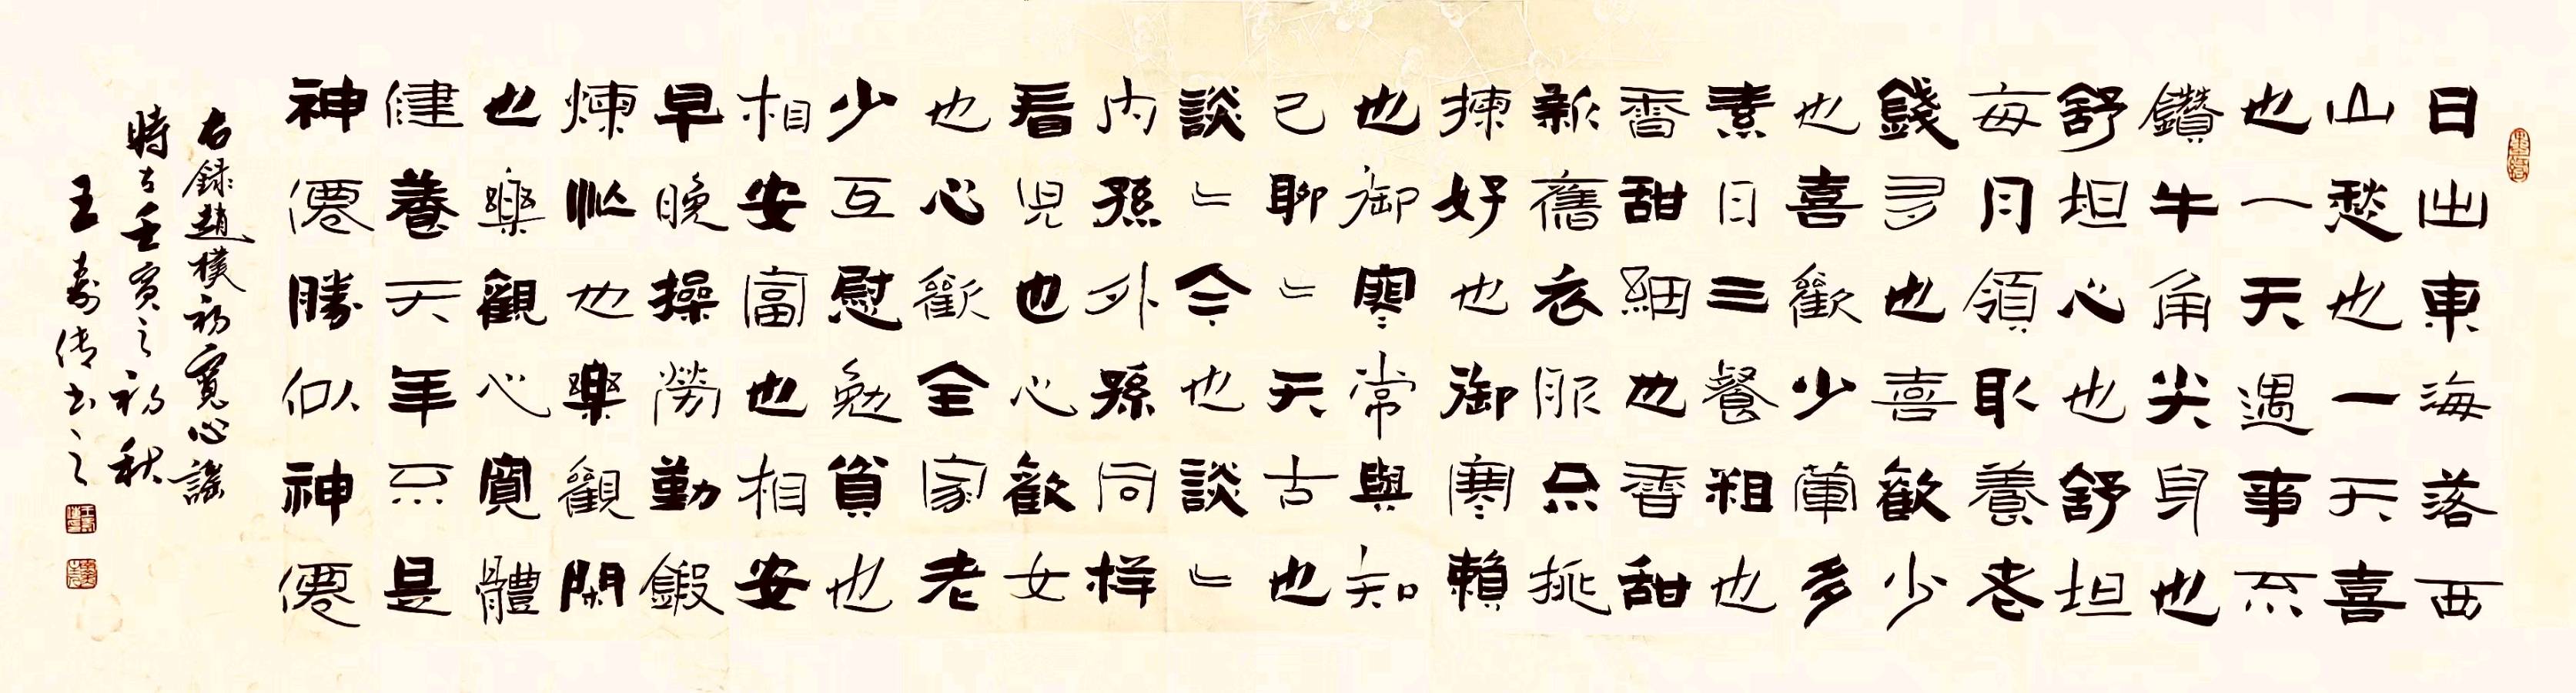 日出東海落西
山愁也一天喜
也一天遇事不
鑽牛角尖身也
舒坦心也舒坦
每月領取養老
錢多也喜歡少
也喜歡少葷多
素日三餐粗也
香甜細也香甜
新舊衣服不挑
揀好也御寒賴
也御寒常與知
己聊〻天古也
談〻今也談〻
内孫外孫同樣
看兒也心歡女
也心歡全家老
少互慰勉貧也
相安富也相安
早晚操勞勤鍛
煉忙也樂觀閑
也樂觀心寬體
健養天年不是
神僊勝似神僊
右録趙樸初寬心謠
時在壬寅之初秋
王寿传书之